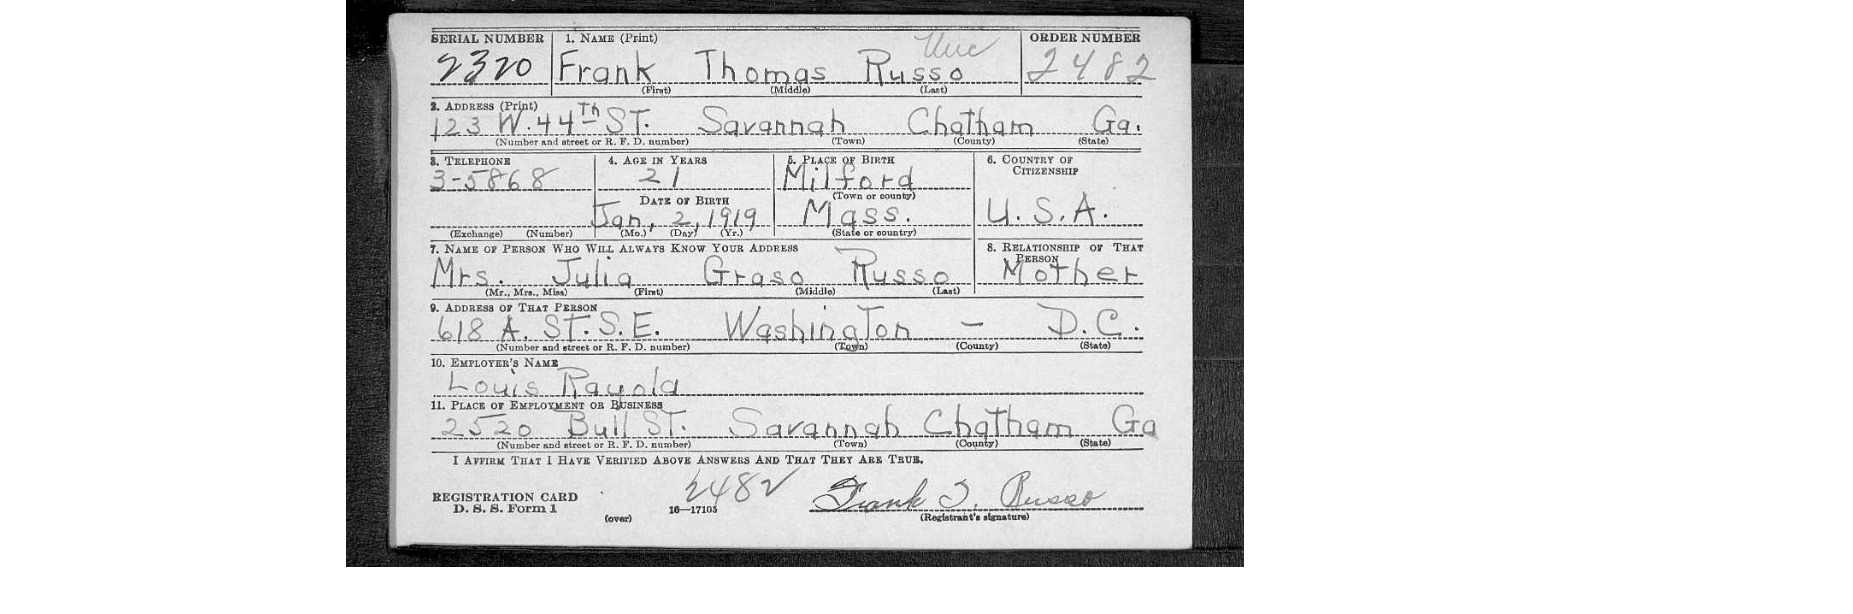 SERIAL NUMBER 1. NAME (Print) ORDER NUMBER
2320 Frank Thomas Russo 2482
(First) (Middle) (Last)
2. ADDRESS (Print)
123 W. 44Th ST. Savannah Chatham Ga.
(Number and street or R. F. D. number) (Town) (County) (State)
3. TELEPHONE 4. AGE IN YEARS 5. PLACE OF BIRTH 6. COUNTRY OF CITIZENSHIP
3-5868 21 Milford
(Town or county)
DATE OF BIRTH
Jan, 2, 1919 Mass. U.S.A.
(Exchange) (Number) (Mo.) (Day) (Yr.) (State or country)
7. NAME OF PERSON WHO WILL ALWAYS KNOW YOUR ADDRESS 8. RELATIONSHIP OF THAT PERSON
Mrs. Julia Graso Russo Mother
(Mr., Mrs., Miss) (First) (Middle) (Last)
9. ADDRESS OF THAT PERSON
618 A. ST. S.E. Washington — D.C.
(Number and street or R. F. D. number) (Town) (County) (State)
10. EMPLOYER'S NAME
Louis Rayola
11. PLACE OF EMPLOYMENT OR BUSINESS
2520 Bull ST. Savannah Chatham Ga
(Number and street or R. F. D. number) (Town) (County) (State)
I AFFIRM THAT I HAVE VERIFIED ABOVE ANSWERS AND THAT THEY ARE TRUE.
2482 Frank T. Russo
REGISTRATION CARD
D. S. S. Form 1 (over) 16—17105 (Registrant's signature)